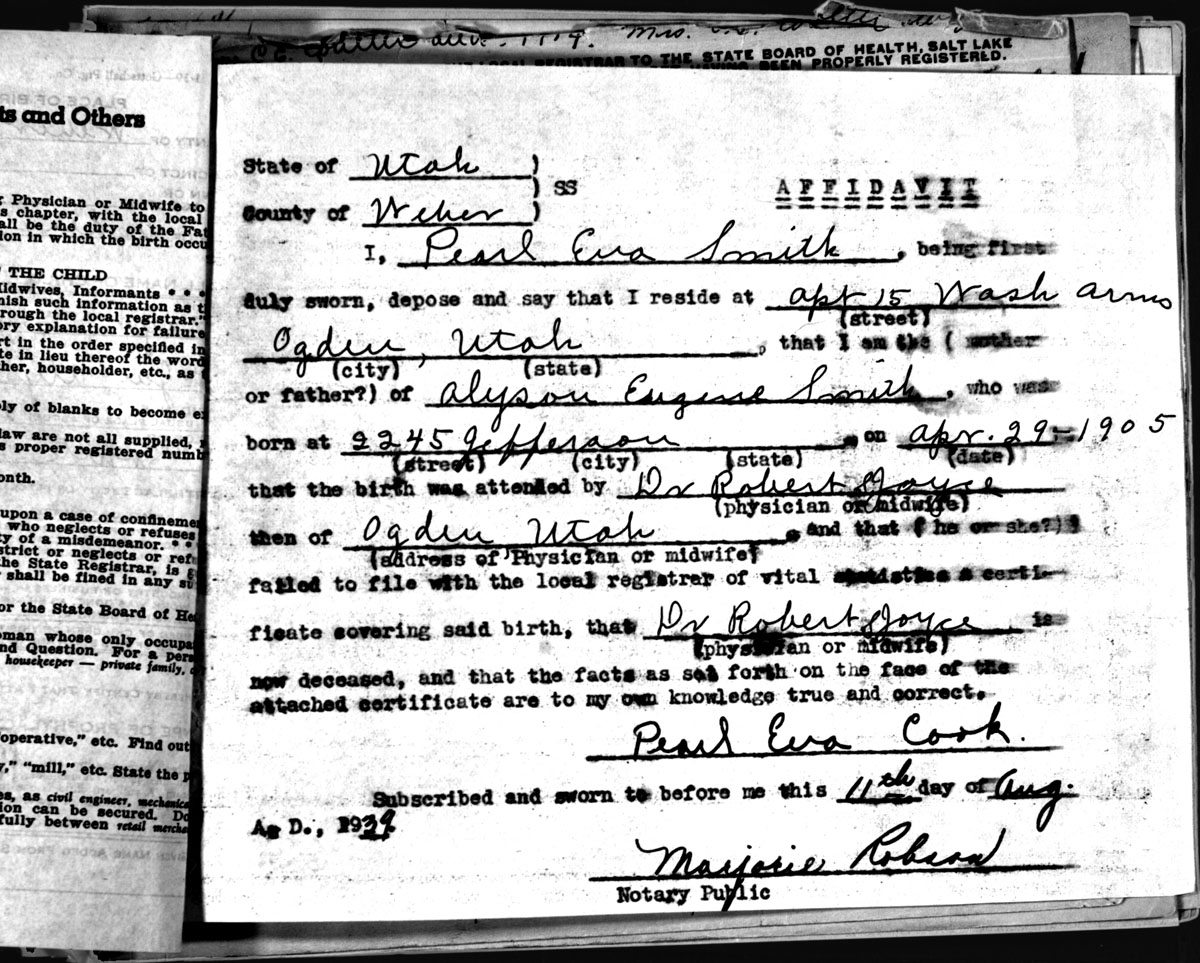 TO THE STATE BOARD OF HEALTH, SALT LAKE
BEEN PROPERLY REGISTERED.
ts and Others
Physician or Midwife to
s chapter, with the local
all be the duty of the Fat
ion in which the birth occu
THE CHILD
Midwives, Informants * * *
nish such information as t
rough the local registrar."
ory explanation for failure
rt in the order specified in
te in lieu thereof the word
her, householder, etc., as
ply of blanks to become e
law are not all supplied,
s proper registered numb
onth.
upon a case of confineme
who neglects or refuses
ty of a misdemeanor. * *
strict or neglects or ref
the State Registrar, is
shall be fined in any su
or the State Board of He
oman whose only occupa
nd Question. For a pers
housekeeper — private family,
operative," etc. Find out
y," "mill," etc. State the p
es, as civil engineer, mechanica
ion can be secured. Do
fully between retail mercha
State of Utah )
) SS AFFIDAVIT
County of Weber )
I, Pearl Eva Smith, being first
duly sworn, depose and say that I reside at Apt 15 Wash Arms
(street)
Ogden, Utah, that I am the ( mother
(city) (state)
or father?) of Alyson Eugene Smith, who was
born at 2245 Jefferson, on Apr. 29-1905
(street) (city) (state) (date)
that the birth was attended by Dr Robert Joyce
(physician or midwife)
then of Ogden Utah, and that ( he or she?)
(address of Physician or midwife)
failed to file with the local registrar of vital statistics a certi-
ficate covering said birth, that Dr Robert Joyce is
(physician or midwife)
now deceased, and that the facts as set forth on the face of the
attached certificate are to my own knowledge true and correct.
Pearl Eva Cook.
Subscribed and sworn to before me this 11th day of Aug.
A. D., 1939
Marjorie Robson
Notary Public